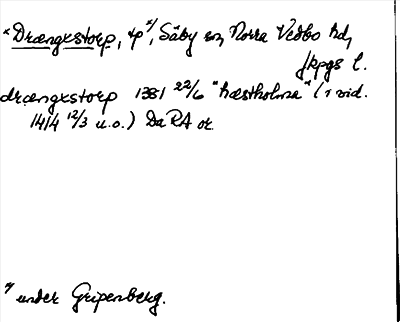 *Drængxstorp, tp x/, Säby sn, Norra Vedbo hd,
Jkpgs l.
drængxstorp 1381 22/6 "hæstholma" (i vid.
1414 12/3 u.o.) DaRA or.
x/ under Gripenberg.